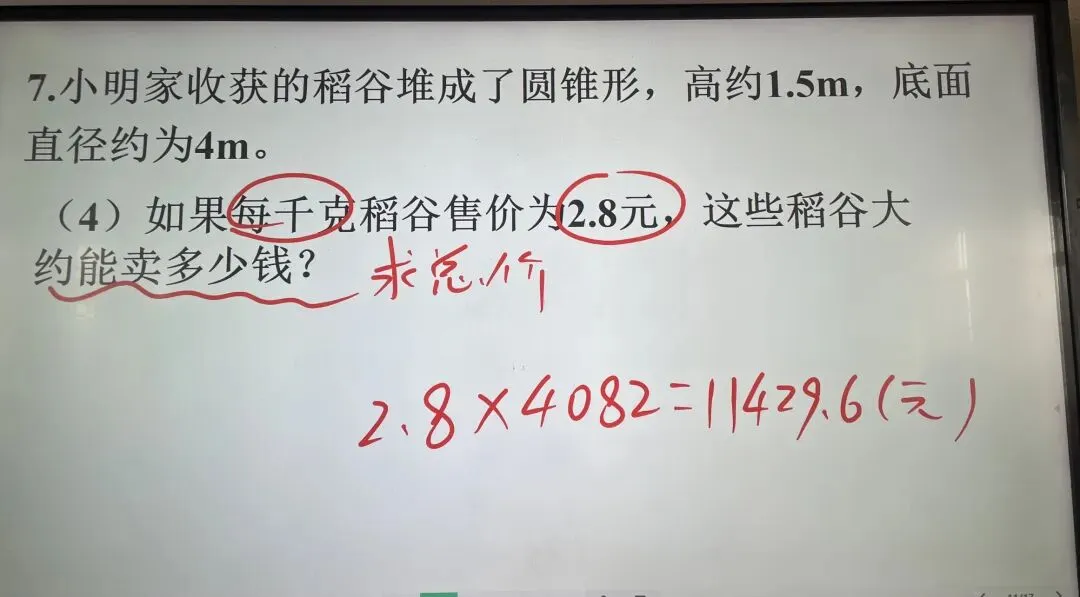 7.小明家收获的稻谷堆成了圆锥形，高约1.5m，底面
直径约为4m。
（4）如果每千克稻谷售价为2.8元，这些稻谷大
约能卖多少钱？
求总价
2.8×4082=11429.6(元)